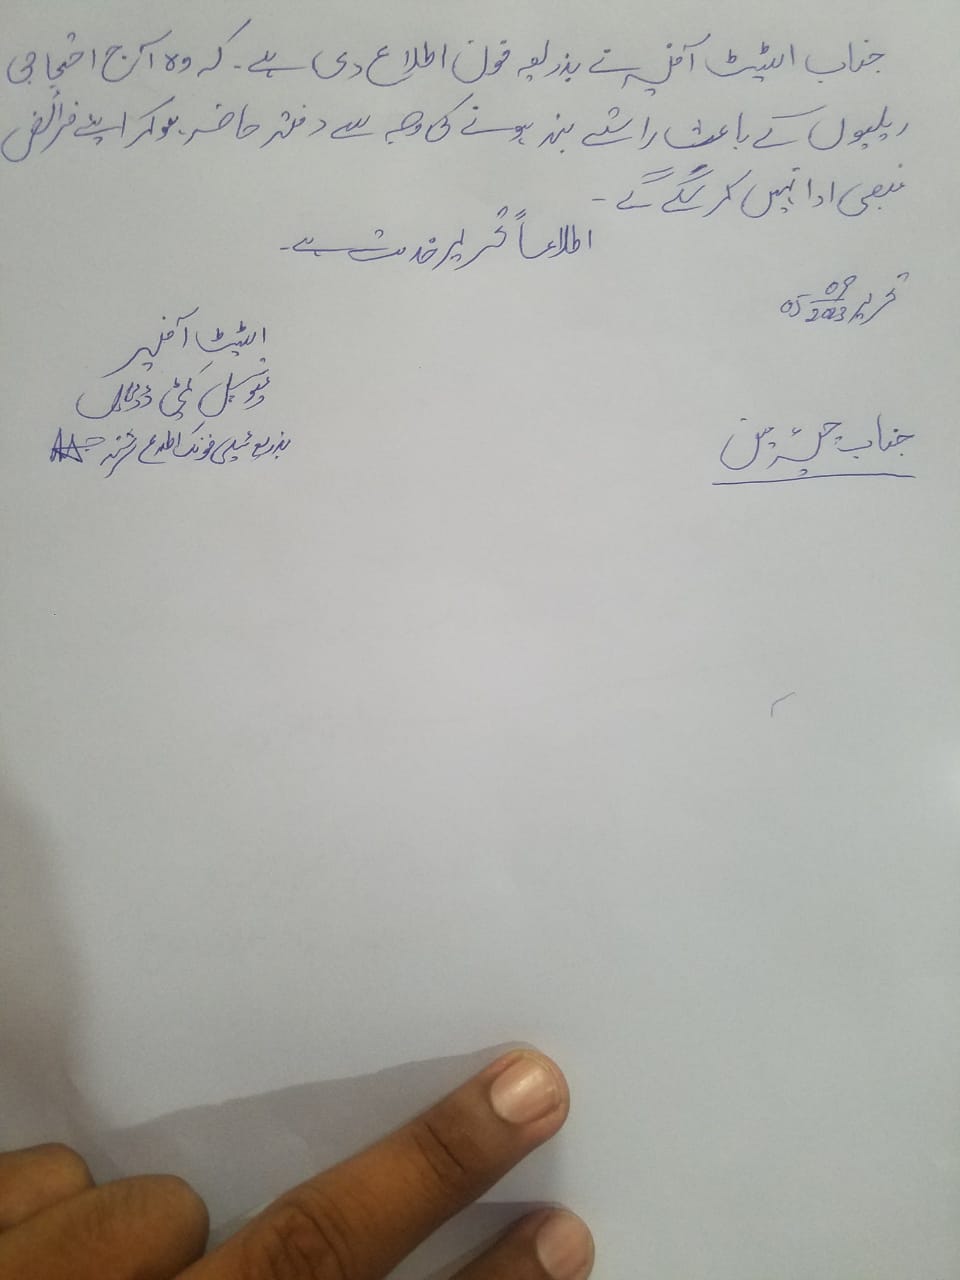 جناب اسٹیٹ آفیسر نے بذریعہ فون اطلاع دی ہے۔ کہ وہ آج احتجاجی
ریلیوں کے باعث راستے بند ہونے کی وجہ سے دفتر حاضر ہو کر اپنے فرائض
منصبی ادا نہیں کر سکیں گے ۔
اطلاعاً تحریر خدمت ہے۔
تحریر 05/09/2023
اسٹیٹ آفیسر
میونسپل کمیٹی
بذریعہ ٹیلی فونک اطلاع
جناب چیئرمین